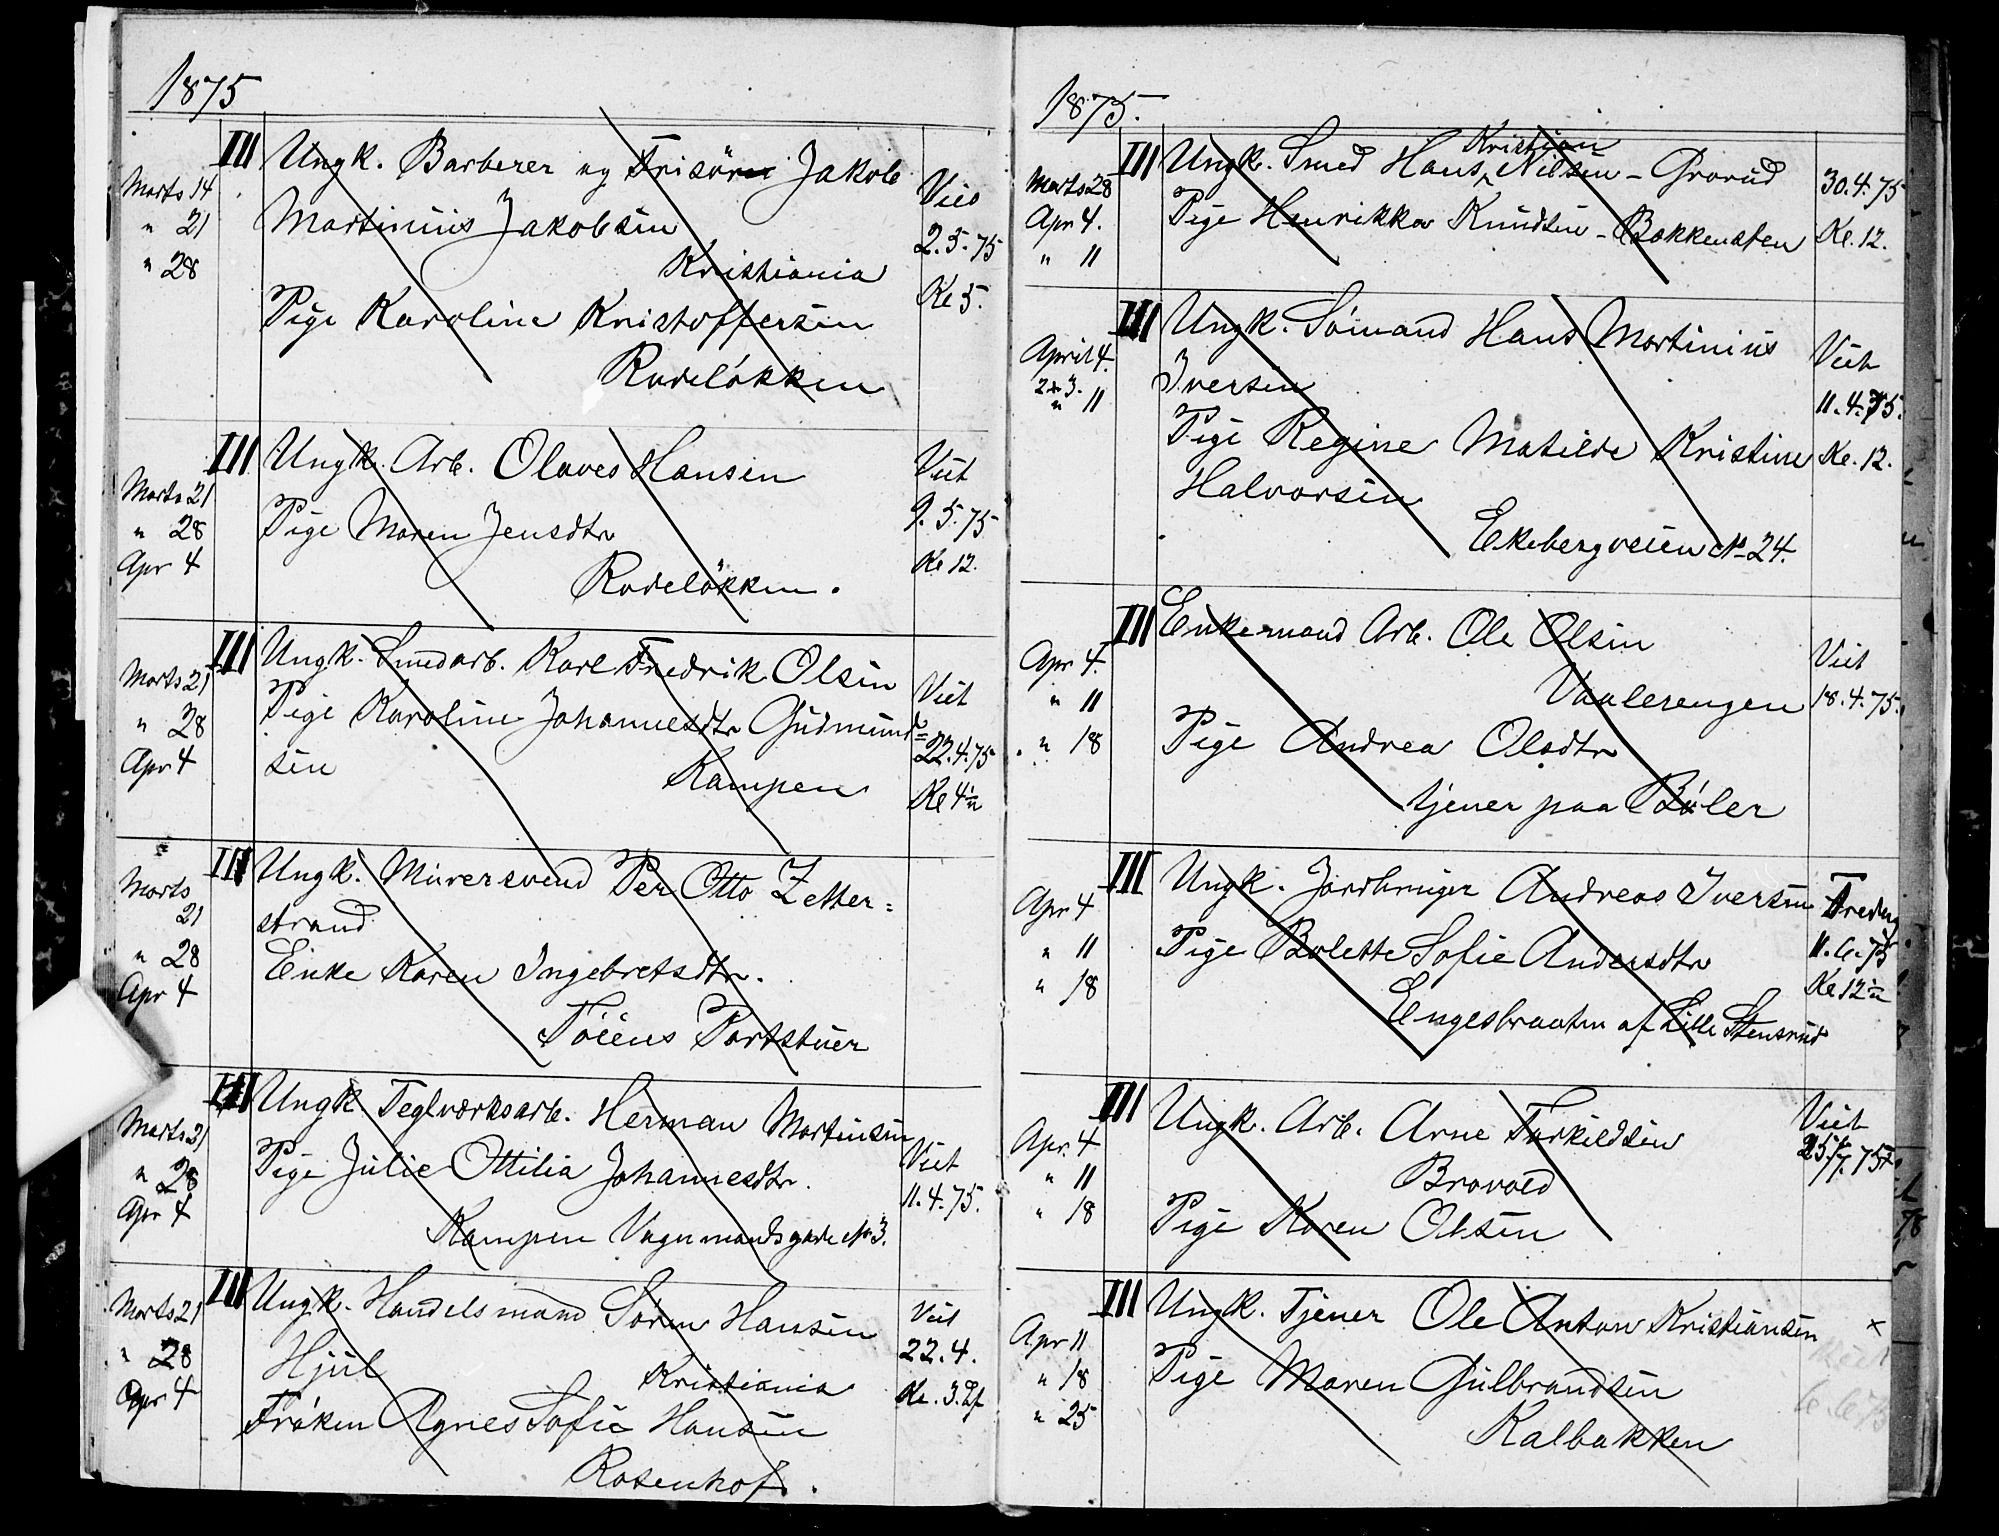 1875
III Ungk. Barberer og Frisör Jakob
Marts 14
Martinius Jakobsen
Viet
" 21
2.5.75
" 28
Kristiania
Kl 5.
Pige Karoline Kristoffersen
Rodeløkken
III Ungk. Arb. Olaves Hansen
Viet
Marts 21
Pige Maren Jensdtr
9.5.75
" 28
Kl 12.
Apr 4
Rodeløkken.
III Ungk. Smedarb. Karl Fredrik Olsen
Marts 21
Viet
Pige Karoline Johannesdtr Gudmund=
" 28
22.4.75
Apr 4
sen Kampen
Kl 4½
III Ungk. Murersvend Per Otto Zetter=
Marts
21
strand
" 28
Enke Karen Ingebretsdtr.
Apr 4
Töiens Portstuer
III Ungk. Teglværksarb. Herman Martinsen
Marts 21
Pige Julie Ottilia Johannesdtr.
Viet
" 28
11.4.75.
Apr 4
Kampen Vognmandsgade No 3.
III Ungk. Handelsmand Søren Hansen
Marts 21
Viet
" 28
Hjul Kristiania
22.4.
Apr 4
Kl. 3.
Frøken Agnes Sofie Hansen
Rosenhof.
1875.
Kristian
III Ungk. Smed Hans Nilsen - Grorud
Marts 28
30.4.75
Apr 4.
Pige Henrikka Knudsen - Bakkensten
Kl. 12.
" 11
III Ungk. Sømand Hans Martinius
April 4.
Viet
2 & 3.
Iversen
" 11
11.4.75.
Pige Regine Matilde Kristine
Kl. 12.
Halvorsen
Ekebergveien No 24.
III Enkemand Arb. Ole Olsen
Apr 4.
Viet
" 11
Vaalerengen
18.4.75.
" 18
Pige Andrea Olsdtr
tjener paa Bøler
III Ungk. Jordbruger Andreas Iversen
Apr 4
Fredag
" 11
Pige Bolette Sofie Andersdtr
11.6.75
" 18
Kl 12½
Engesbraaten af Lille Stensrud
III Ungk. Arb. Arne Torkildsen
Apr. 4
Viet
" 11
Brovold
25/7.75
" 18
Pige Karen Olsen
III Ungk. Tjener Ole Anton Kristiansen
Apr 11
x
" 18
Pige Maren Gulbrandsen
Viet
" 25
6.6.75
Kalbakken